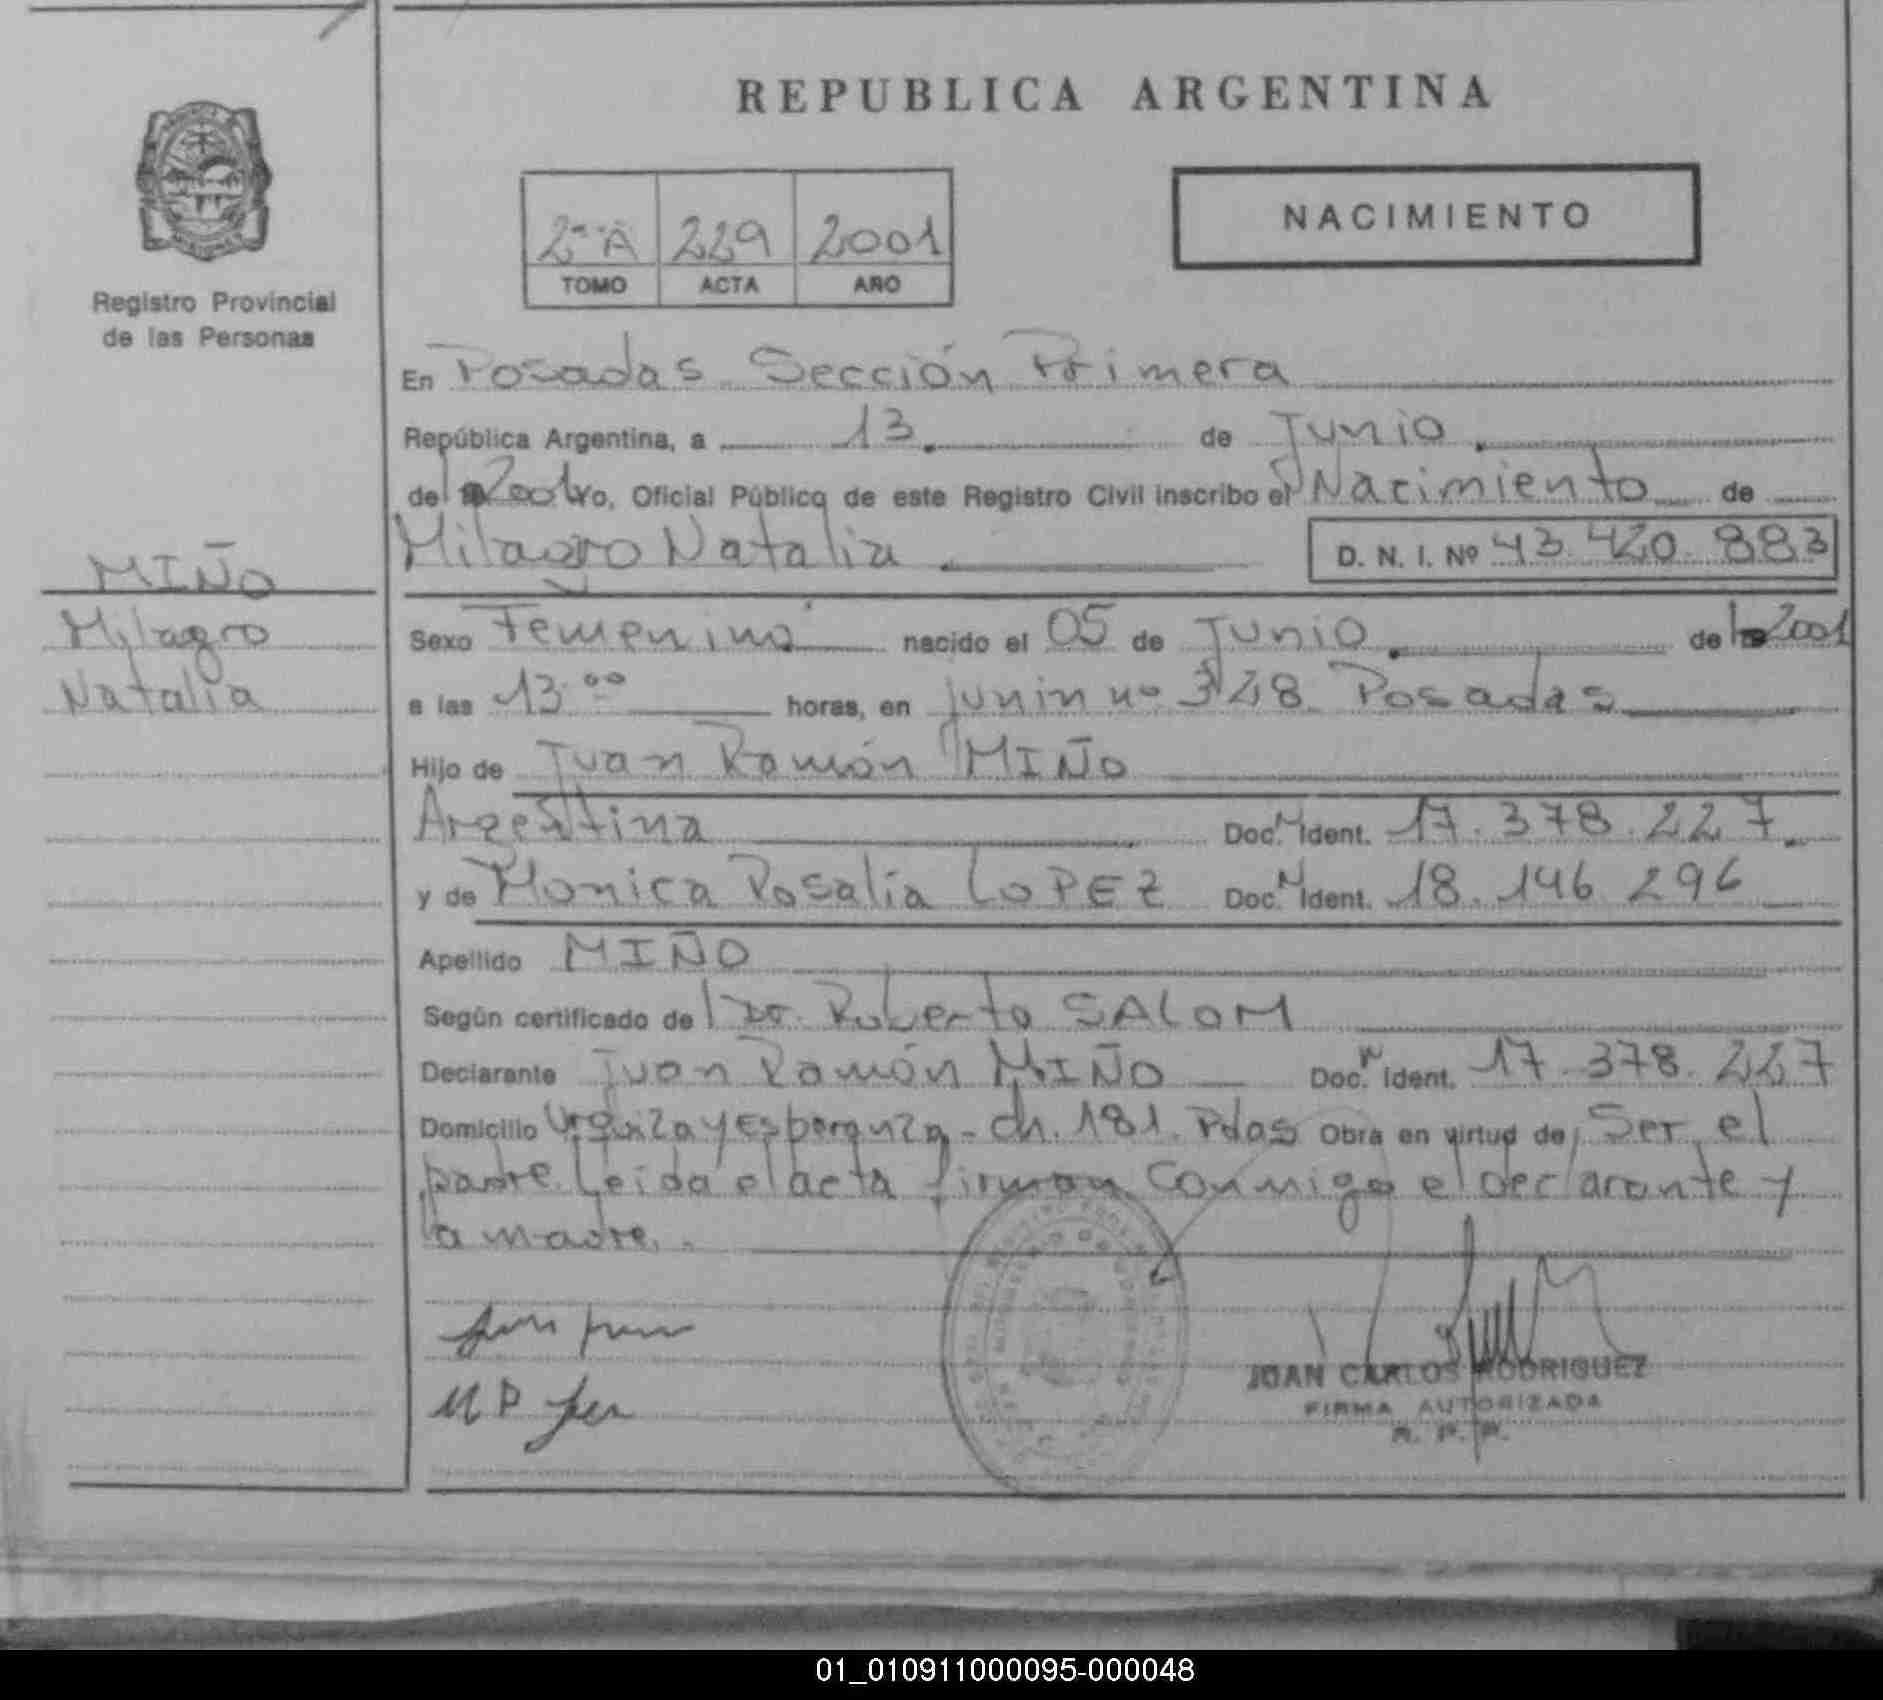 REPUBLICA ARGENTINA
Registro Provincial
de las Personas
2ºº A 229 2001
TOMO ACTA AÑO
NACIMIENTO
En Posadas Sección Primera
República Argentina, a 13. de Junio.
del 2001 yo, Oficial Público de este Registro Civil inscribo el Nacimiento de
Milagro Natalia D. N. I. Nº 43.420.883
MIÑO
Milagro
Natalia
Sexo Femenino nacido el 05 de Junio. del 2001
a las 13:00 horas, en Junin nº 328 Posadas
Hijo de Juan Ramón MIÑO
Argentina Doc. N Ident. 17.378.227.
y de Monica Rosalia LOPEZ Doc. N Ident. 18.146 296
Apellido MIÑO
Según certificado del Dr. Roberto SALOM
Declarante Juan Ramón MIÑO Doc. N Ident. 17.378.227
Domicilio Urquiza y Esperanza - Ch. 181. Pdas Obra en virtud de Ser el
padre. Leida el acta firman conmigo el declarante y
la madre.
JUAN CARLOS RODRIGUEZ
FIRMA AUTORIZADA
R. P. P.
01_010911000095-000048